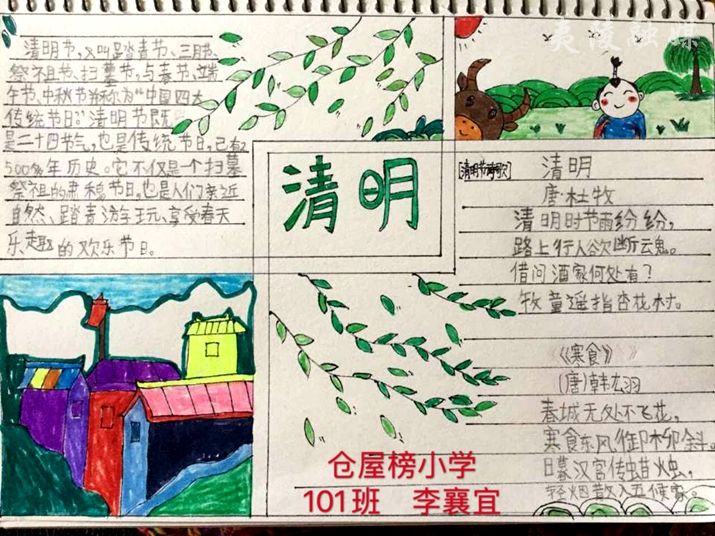 清明节,又叫踏青节、三月节、
祭祖节、扫墓节,与春节、端
午节、中秋节并称为“中国四大
传统节日”清明节既
是二十四节气,也是传统节日,已有
500多年历史。它不仅是一个扫墓
祭祖的肃穆节日,也是人们亲近
自然、踏青游玩、享受春天
乐趣的欢乐节日。
夷陵融媒
清明
[清明节诗歌]
清明
唐杜牧
清明时节雨纷纷,
路上行人欲断云鬼。
借问酒家何处有?
牧童遥指杏花村。
《寒食》
(唐)韩厷羽
春城无处不飞花,
寒食东风御柳斜。
日暮汉宫传蜡烛,
轻烟散入五候家。
仓屋榜小学
101班 李襄宜